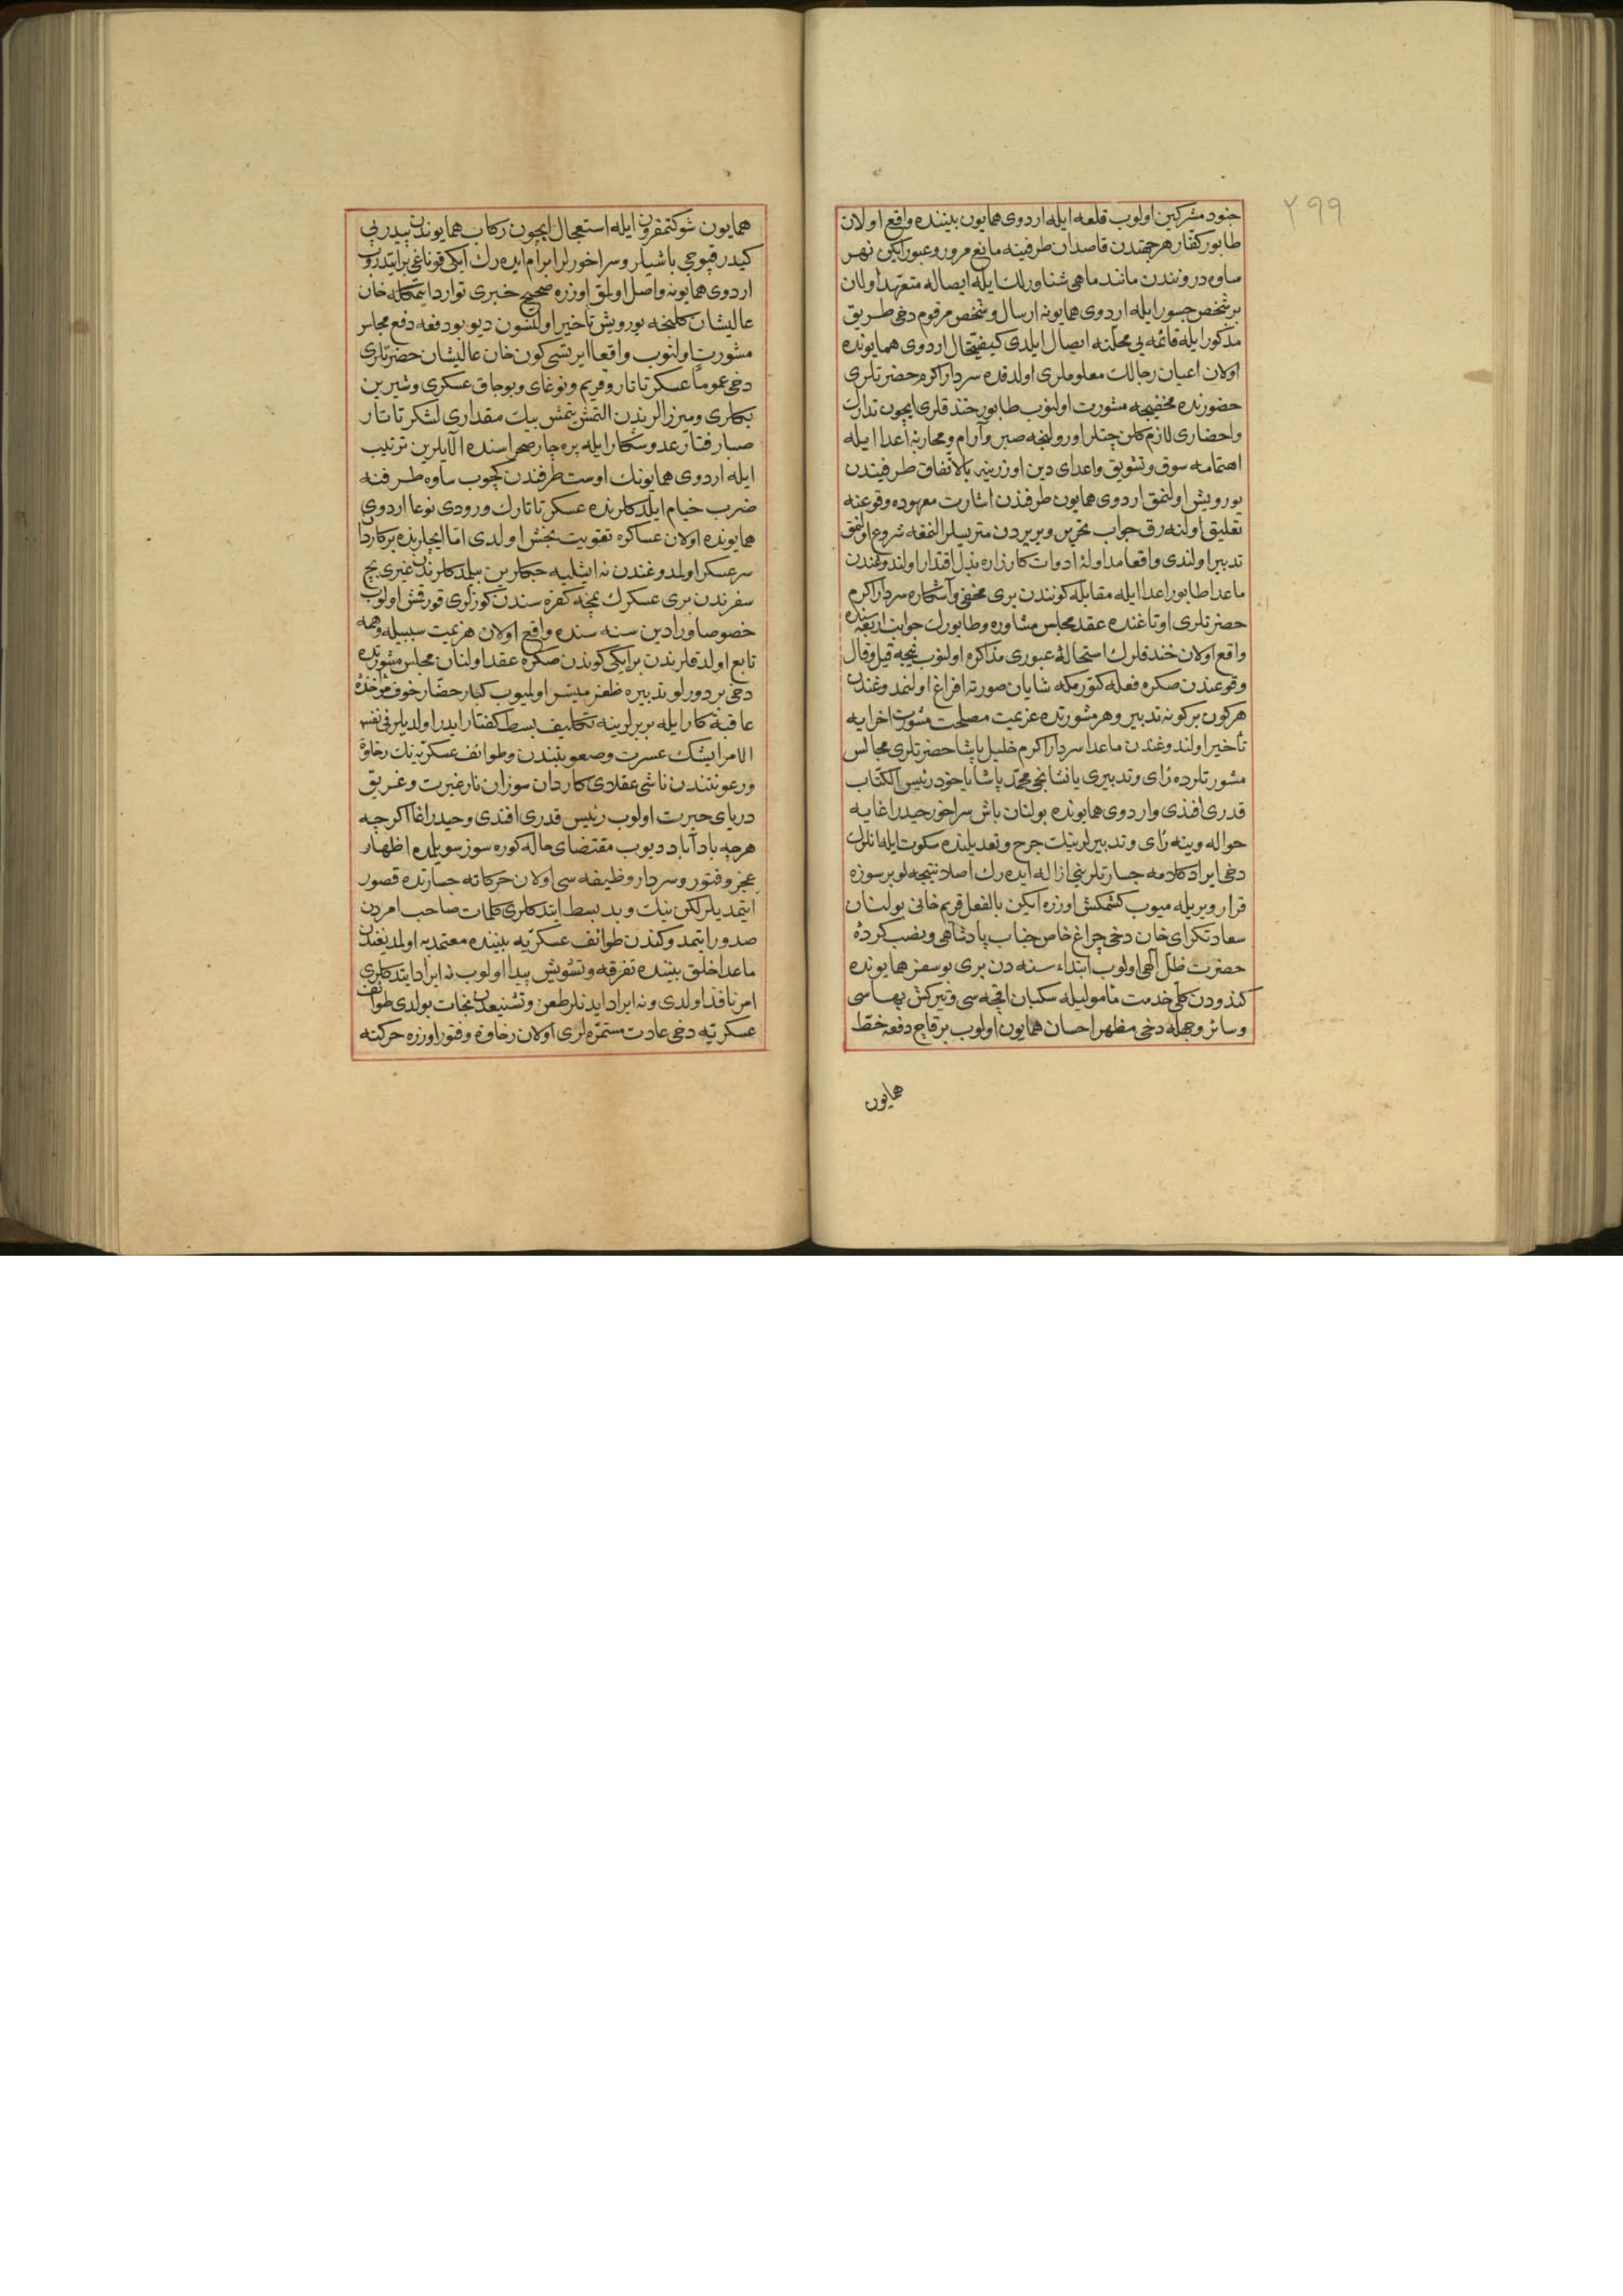 ٢٩٩
جنود مشركين اولوب قلعه ايله اردوى همايون بيننده واقع اولان
طابور كفار هر جهتدن قاصدان طرفينه مانع مرور وعبور ايكن نهر
ساوه دروندن مانند ماهى شناورلك ايله ايصاله متعهد اولان
بر شخص جسور ايله اردوى همايونه ارسال وشخص مرقوم دخى طريق
مذكور ايله قائمه يى محلنه ايصال ايلدى كيفيتحال اردوى همايونده
اولان اعيان رجالك معلوملرى اولدقده سردار اكرم حضرتلرى
حضورنده مخفيجه مشورت اولنوب طابور خندقلرى ايچون تدارك
واحضارى لازم كلن چتلر اورولنجه صبر وآرام ومحاربۀ اعدا ايله
اهتمامه سوق وتشويق واعداى دين اوزرينه بالاتفاق طرفيندن
يورويش اولنمق اردوى همايون طرفندن اشارت معهوده وقوعنه
تعليق اولنه رق جواب تحرير وبريردن متريسلر القعه شروع اولنمق
تدبير اولندى واقعا مداولۀ ادوات كارزاره بذل اقتدار اولندوغندن
ماعدا طابور اعدا ايله مقابله كونندن برى مخفى وآشكاره سردار اكرم
حضرتلرى اوتاغنده عقد مجلس مشاوره وطابورك جوانب اربعه سنده
واقع اولان خندقلرك استحالۀ عبورى مذاكره اولنوب نيجه قيل وقال
وقوعندن صكره فعله كتورمكه شايان صورته افراغ اولنمدوغندن
هر كون بر كونه تدبير وهر مشورتده عزيمت مصلحت مشورت اخرايه
تأخير اولندوغندن ماعدا سردار اكرم خليل پاشا حضرتلرى مجالس
مشورتلرده رأى وتدبيرى يا نشانجى محمد پاشايا خود رئيس الكتاب
قدرى افندى واردوى همايونده بولنان باش سراخور حيدر اغايه
حواله وينه رأى وتدبيرلرينك جرح وتعديلنده سكوت ايله انلرك
دخى ايراد كلامه جسارتلرينى ازاله ايده رك اصلا نتيجه لو بر سوزه
قرار ويريله ميوب كشمكش اوزره ايكن بالفعل قريم خانى بولنان
سعادتكراى خان دخى چراغ خاص جناب پادشاهى ونصب كردۀ
حضرت ظل الهى اولوب ابتداء سنه دن برى بو سفر همايونده
كندودن كلى خدمت مأموليله سكبان اقچه سى وتيركش بهاسى
وسائر وجهله دخى مظهر احسان همايون اولوب برقاچ دفعه خط
همايون
همايون شوكتمقرون ايله استعجال ايچون ركاب همايوندن پيدرپى
كيدر قپوجى باشيلر وسراخورلر ابرام ايده رك ايكى قوناغى بر ايتدروب
اردوى همايونه واصل اولمق اوزره صحيح خبرى توارد ايتمكله خان
عاليشان كلنجه يورويش تأخير اولنسون ديو بو دفعه دفع مجلس
مشورت اولنوب واقعا ايرتسى كون خان عاليشان حضرتلرى
دخى عموما عسكر تاتار وقريم ونوغاى وبوجاق عسكرى وشيرين
بكلرى وميرزالريندن التمش يتمش بيك مقدارى لشكر تاتار
صبا رفتار عدو شكار ايله پره جار صحراسنده الايلرين ترتيب
ايله اردوى همايونك اوست طرفندن كچوب ساوه طرفنه
ضرب خيام ايلدكلرنده عسكر تاتارك ورودى نوعا اردوى
همايونده اولان عساكره تقويت بخش اولدى اما ايچلرنده بر كاردان
سرعسكر اولمدوغندن نه ايشليه جكلرين بيلمدكلرندن غيرى بچ
سفرندن برى عسكرك پنجۀ كفره سندن كوزلرى قورقمش اولوب
خصوصا ورادين سنه سنده واقع اولان هزيمت سببيله وهمه
تابع اولدقلرندن بر ايكى كوندن صكره عقد اولنان مجلس مشورتده
دخى بر دورلو تدبيره ظفر ميسر اولميوب كبار حضار خوف مؤاخذۀ
عاقبة كار ايله بربرلرينه تكليف بسط كفتار ايدر اولديلر فى نفس
الامر ايشك عسرت وصعوبتندن وطوائف عسكريه نك رخاوة
ورعونتندن ناشى عقلاى كاردان سوزان نار غيرت وغريق
درياى حيرت اولوب رئيس قدرى افندى وحيدر اغا اكرچه
هرچه باد آباد ديوب مقتضاى حاله كوره سوز سويلمده اظهار
عجز وفتور وسردار وظيفه سى اولان حركاته جسارتده قصور
ايتمديلر لكن نيك وبد بسط ايتدكلرى كلمات صاحب امردن
صدور ايتمدوكندن طوائف عسكريه بيننده معتمد به اولمديغندن
ماعدا خلق بيننده تفرقه وتشويش پيدا اولوب نه ايراد ايتدكلرى
امر نافذ اولدى ونه ايراد ايدنلر طعن وتشنيعدن نجات بولدى طوائف
عسكريه دخى عادت مستمره لرى اولان رخاوة وفتور اوزره حركته